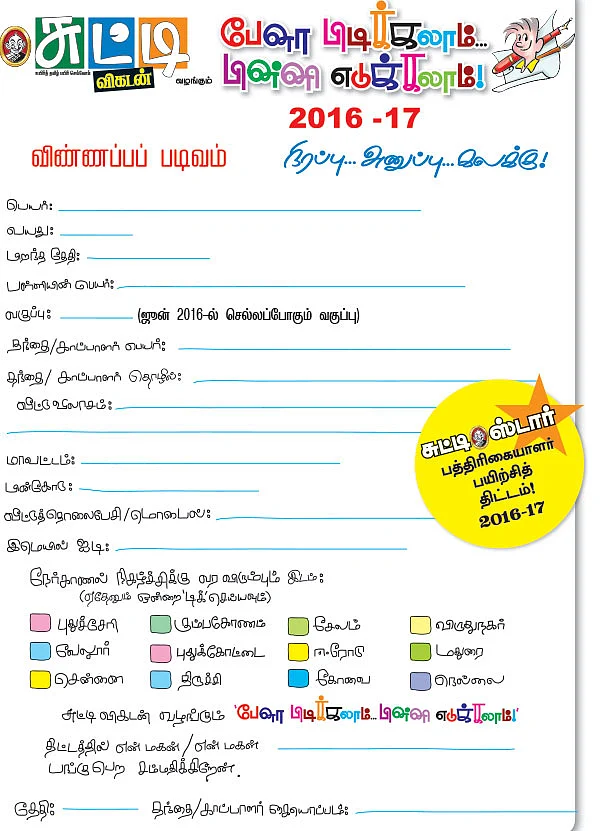 சுட்டி
விகடன்
வழங்கும்
பேனா பிடிக்கலாம்...
பின்னி எடுக்கலாம்!
2016 -17
விண்ணப்பப் படிவம்
நிரப்பு... அனுப்பு... கலக்கு!
பெயர்:
வயது:
பிறந்த தேதி:
பள்ளியின் பெயர்:
வகுப்பு: (ஜூன் 2016-ல் செல்லப்போகும் வகுப்பு)
தந்தை/காப்பாளர் பெயர்:
தந்தை/ காப்பாளர் தொழில்:
வீட்டு விலாசம்:
மாவட்டம்:
பின்கோடு:
வீட்டுத்தொலைபேசி/மொபைல்:
இமெயில் ஐடி:
சுட்டி ஸ்டார்
பத்திரிகையாளர்
பயிற்சித்
திட்டம்!
2016-17
நேர்காணல் நிகழ்ச்சிக்கு வர விரும்பும் இடம்:
(ஏதேனும் ஒன்றை 'டிக்' செய்யவும்)
புதுச்சேரி கும்பகோணம் சேலம் விருதுநகர்
வேலூர் புதுக்கோட்டை ஈரோடு மதுரை
சென்னை திருச்சி கோவை நெல்லை
சுட்டி விகடன் வழங்கும் 'பேனா பிடிக்கலாம்... பின்னி எடுக்கலாம்!'
திட்டத்தில் என் மகன்/என் மகள்
பங்கு பெற சம்மதிக்கிறேன்.
தேதி: தந்தை/காப்பாளர் கையொப்பம்: